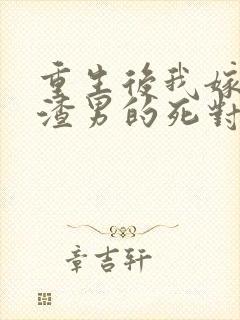 重生後我嫁
渣男的死對
章吉轩